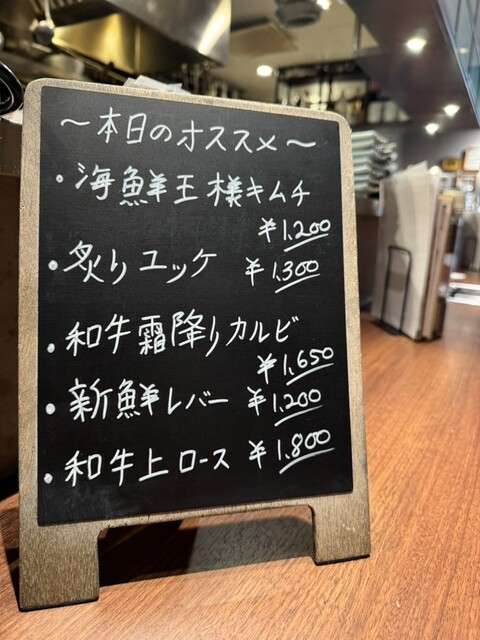 ～本日のオススメ～
・海鮮王様キムチ
¥1,200
・炙りユッケ ¥1,300
・和牛霜降りカルビ
¥1,650
・新鮮レバー ¥1,200
・和牛上ロース ¥1,800